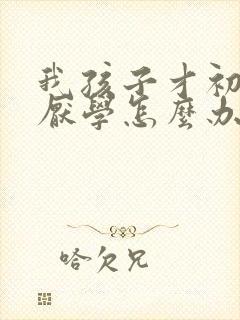 我孩子才初
厭學怎麼办
哈欠兄